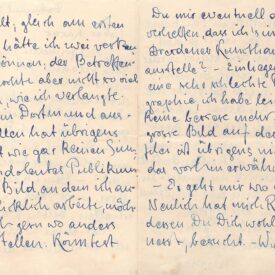 lt, gleich am ersten
hätte ich zwei verkau-
können, der Betreffen-
mochte aber nicht so viel
, wie ich verlangte.
in Dortm und aus-
llen hat übrigens
t wie gar keinen Sinn,
indolentes Publikum.
Bild, an dem ich au-
licklich arbeite, möch-
h gern wo anders
tellen. Könntest
Du mir eventuell d
verhelfen, dass ich's in
Dresdener Kunsthan
ausstelle? - Einliegen
eine sehr schlechte P
graphie, ich habe lei
keine bessere mehr.
grosse Bild auf der
felei ist übrigens nic
das vorhin erwähn
- Es geht mir wo
Neulich hat mich R
dessen Du Dich wohl
nerst, besucht. - Wu